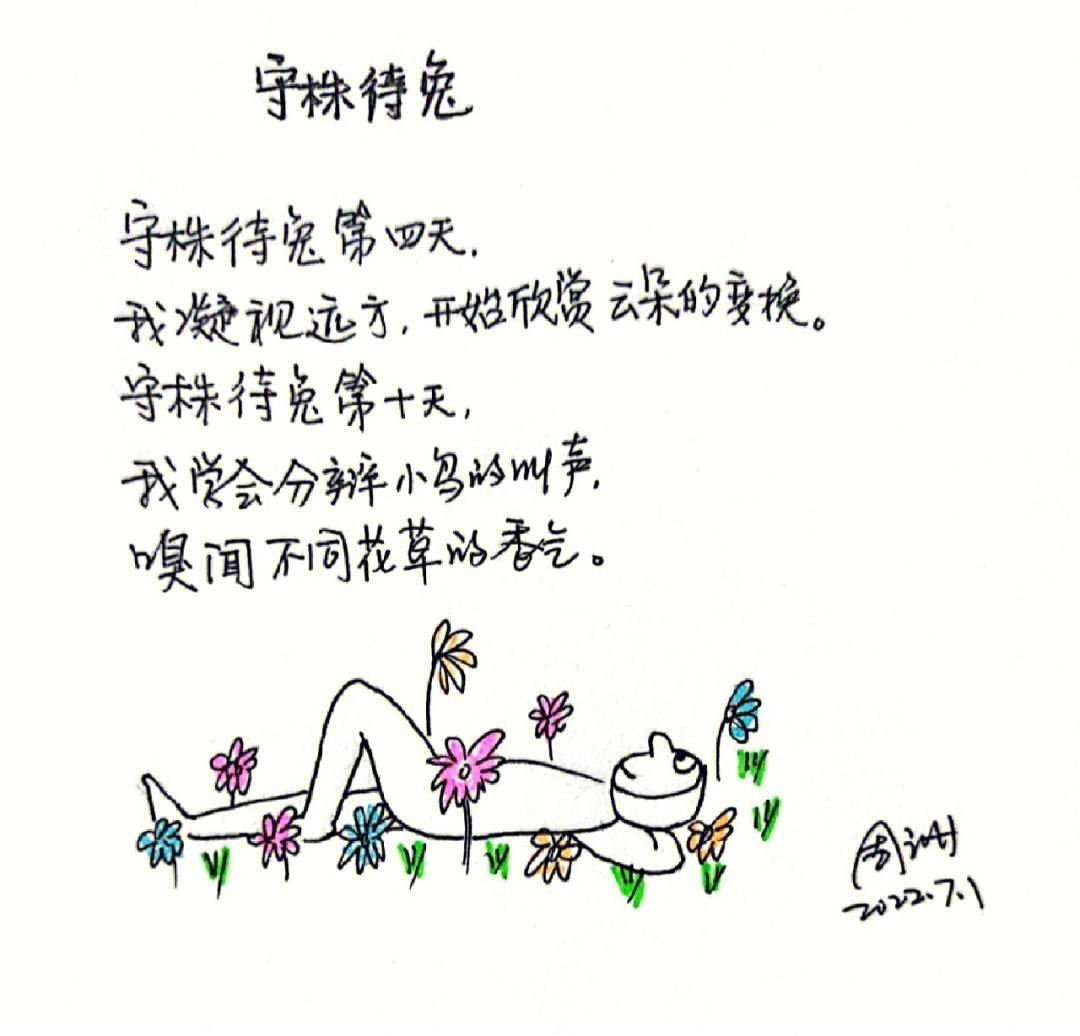 守株待兔
守株待兔第四天,
我凝视远方,开始欣赏云朵的变换。
守株待兔第十天,
我学会分辨小鸟的叫声,
嗅闻不同花草的香气。
2022.7.1